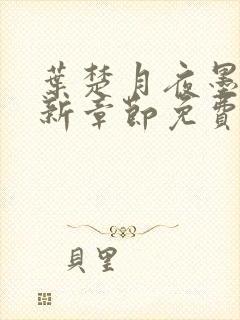 葉楚月夜墨
新章節免費
貝里